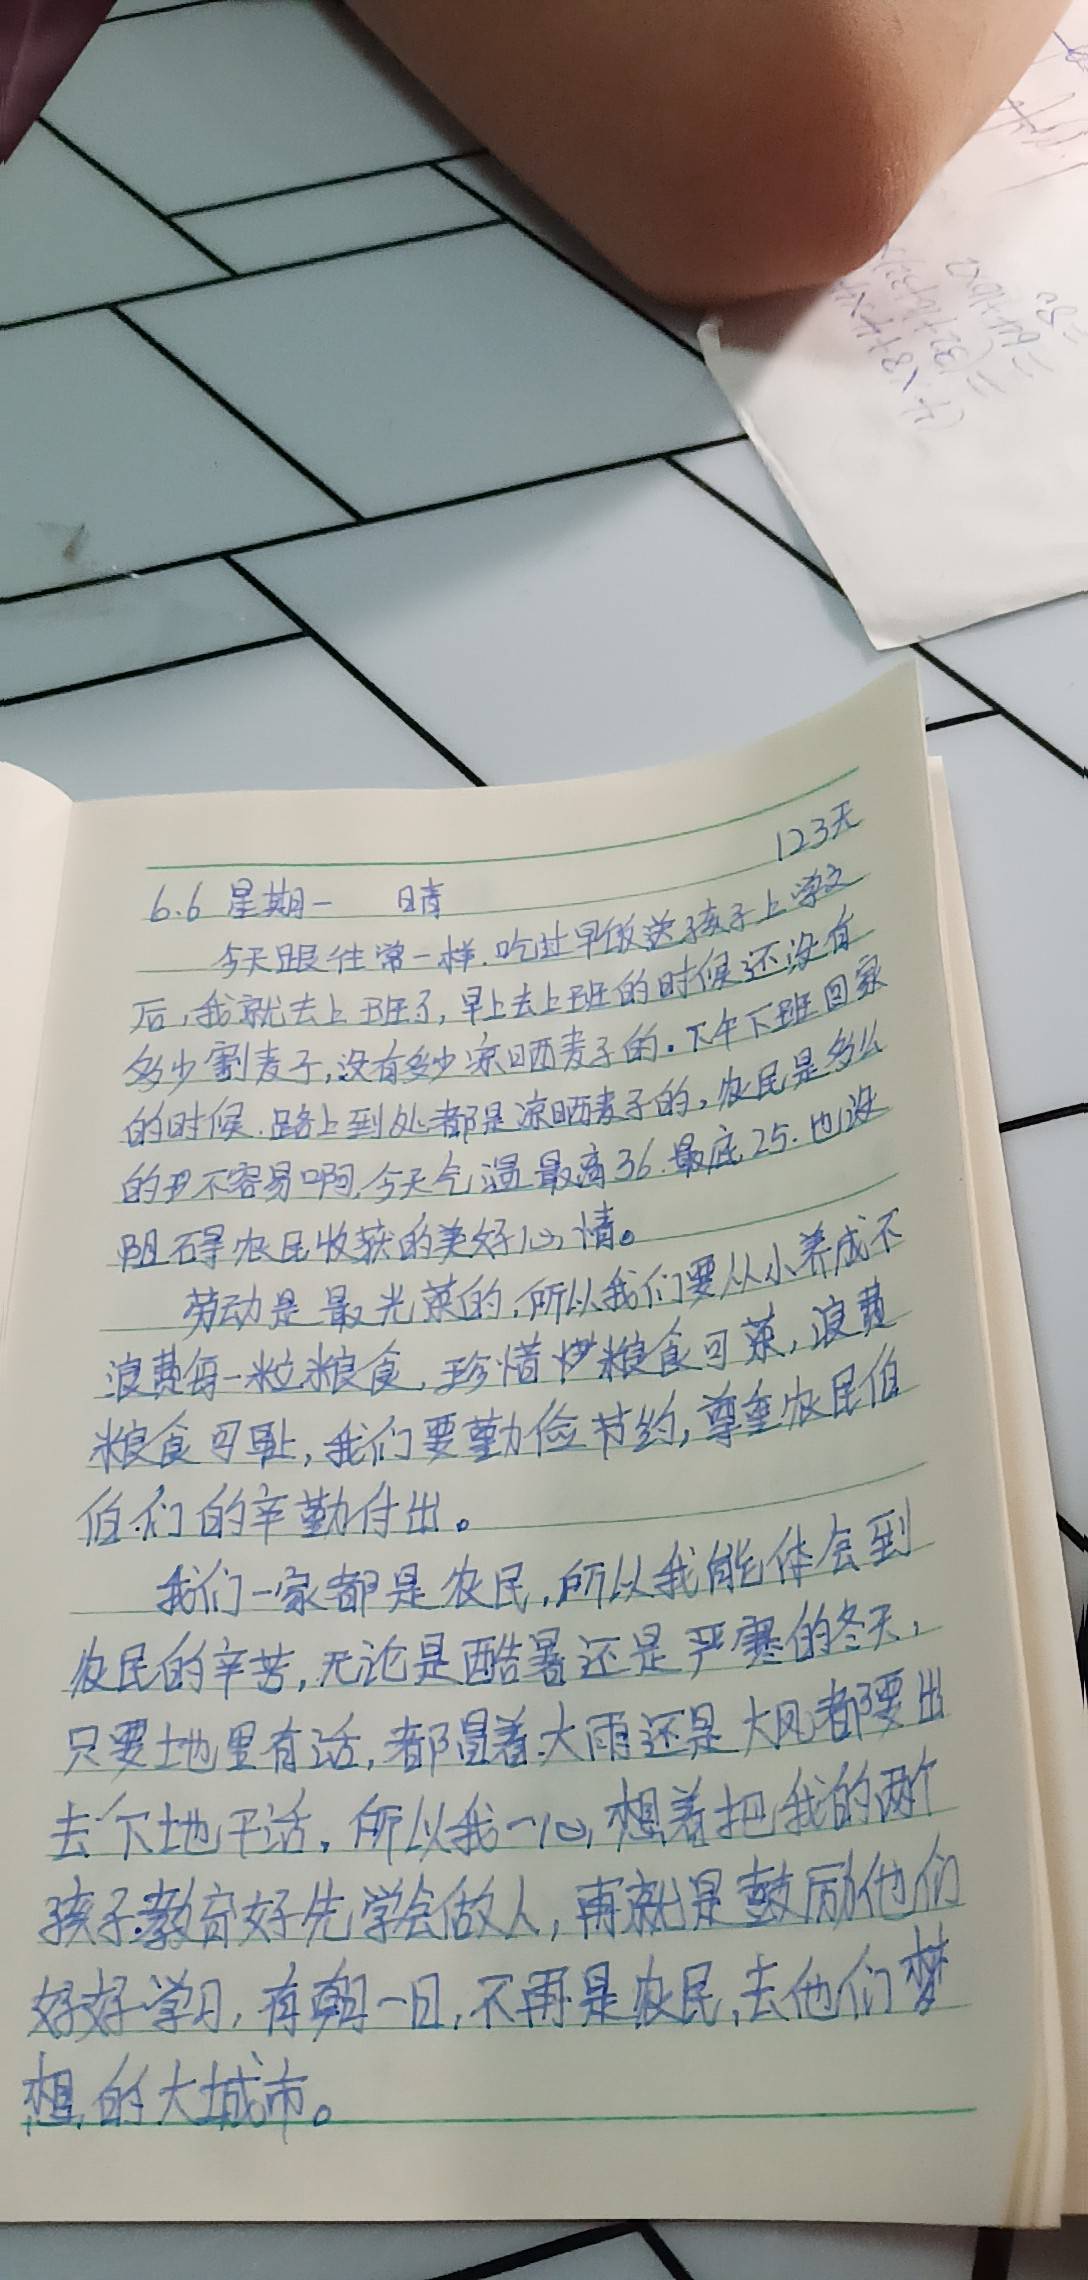 123天
6.6 星期一 晴
今天跟往常一样.吃过早饭送孩子上学校
后,我就去上班了,早上去上班的时候还没有
多少割麦子,没有多少凉晒麦子的.下午下班回家
的时候.路上到处都是凉晒麦子的,农民是多么
的不容易啊,今天气温最高36.最底25.也没
阻碍农民收获的美好心情。
劳动是最光荣的,所以我们要从小养成不
浪费每一粒粮食,珍惜粮食可荣,浪费
粮食可耻,我们要勤俭节约,尊重农民伯
伯们的辛勤付出。
我们一家都是农民,所以我能体会到
农民的辛苦,无论是酷暑还是严寒的冬天,
只要地里有活,都冒着大雨还是大风都要出
去下地干活,所以我一心想着把我的两个
孩子教育好先学会做人,再就是鼓励他们
好好学习,有朝一日,不再是农民,去他们梦
想的大城市。